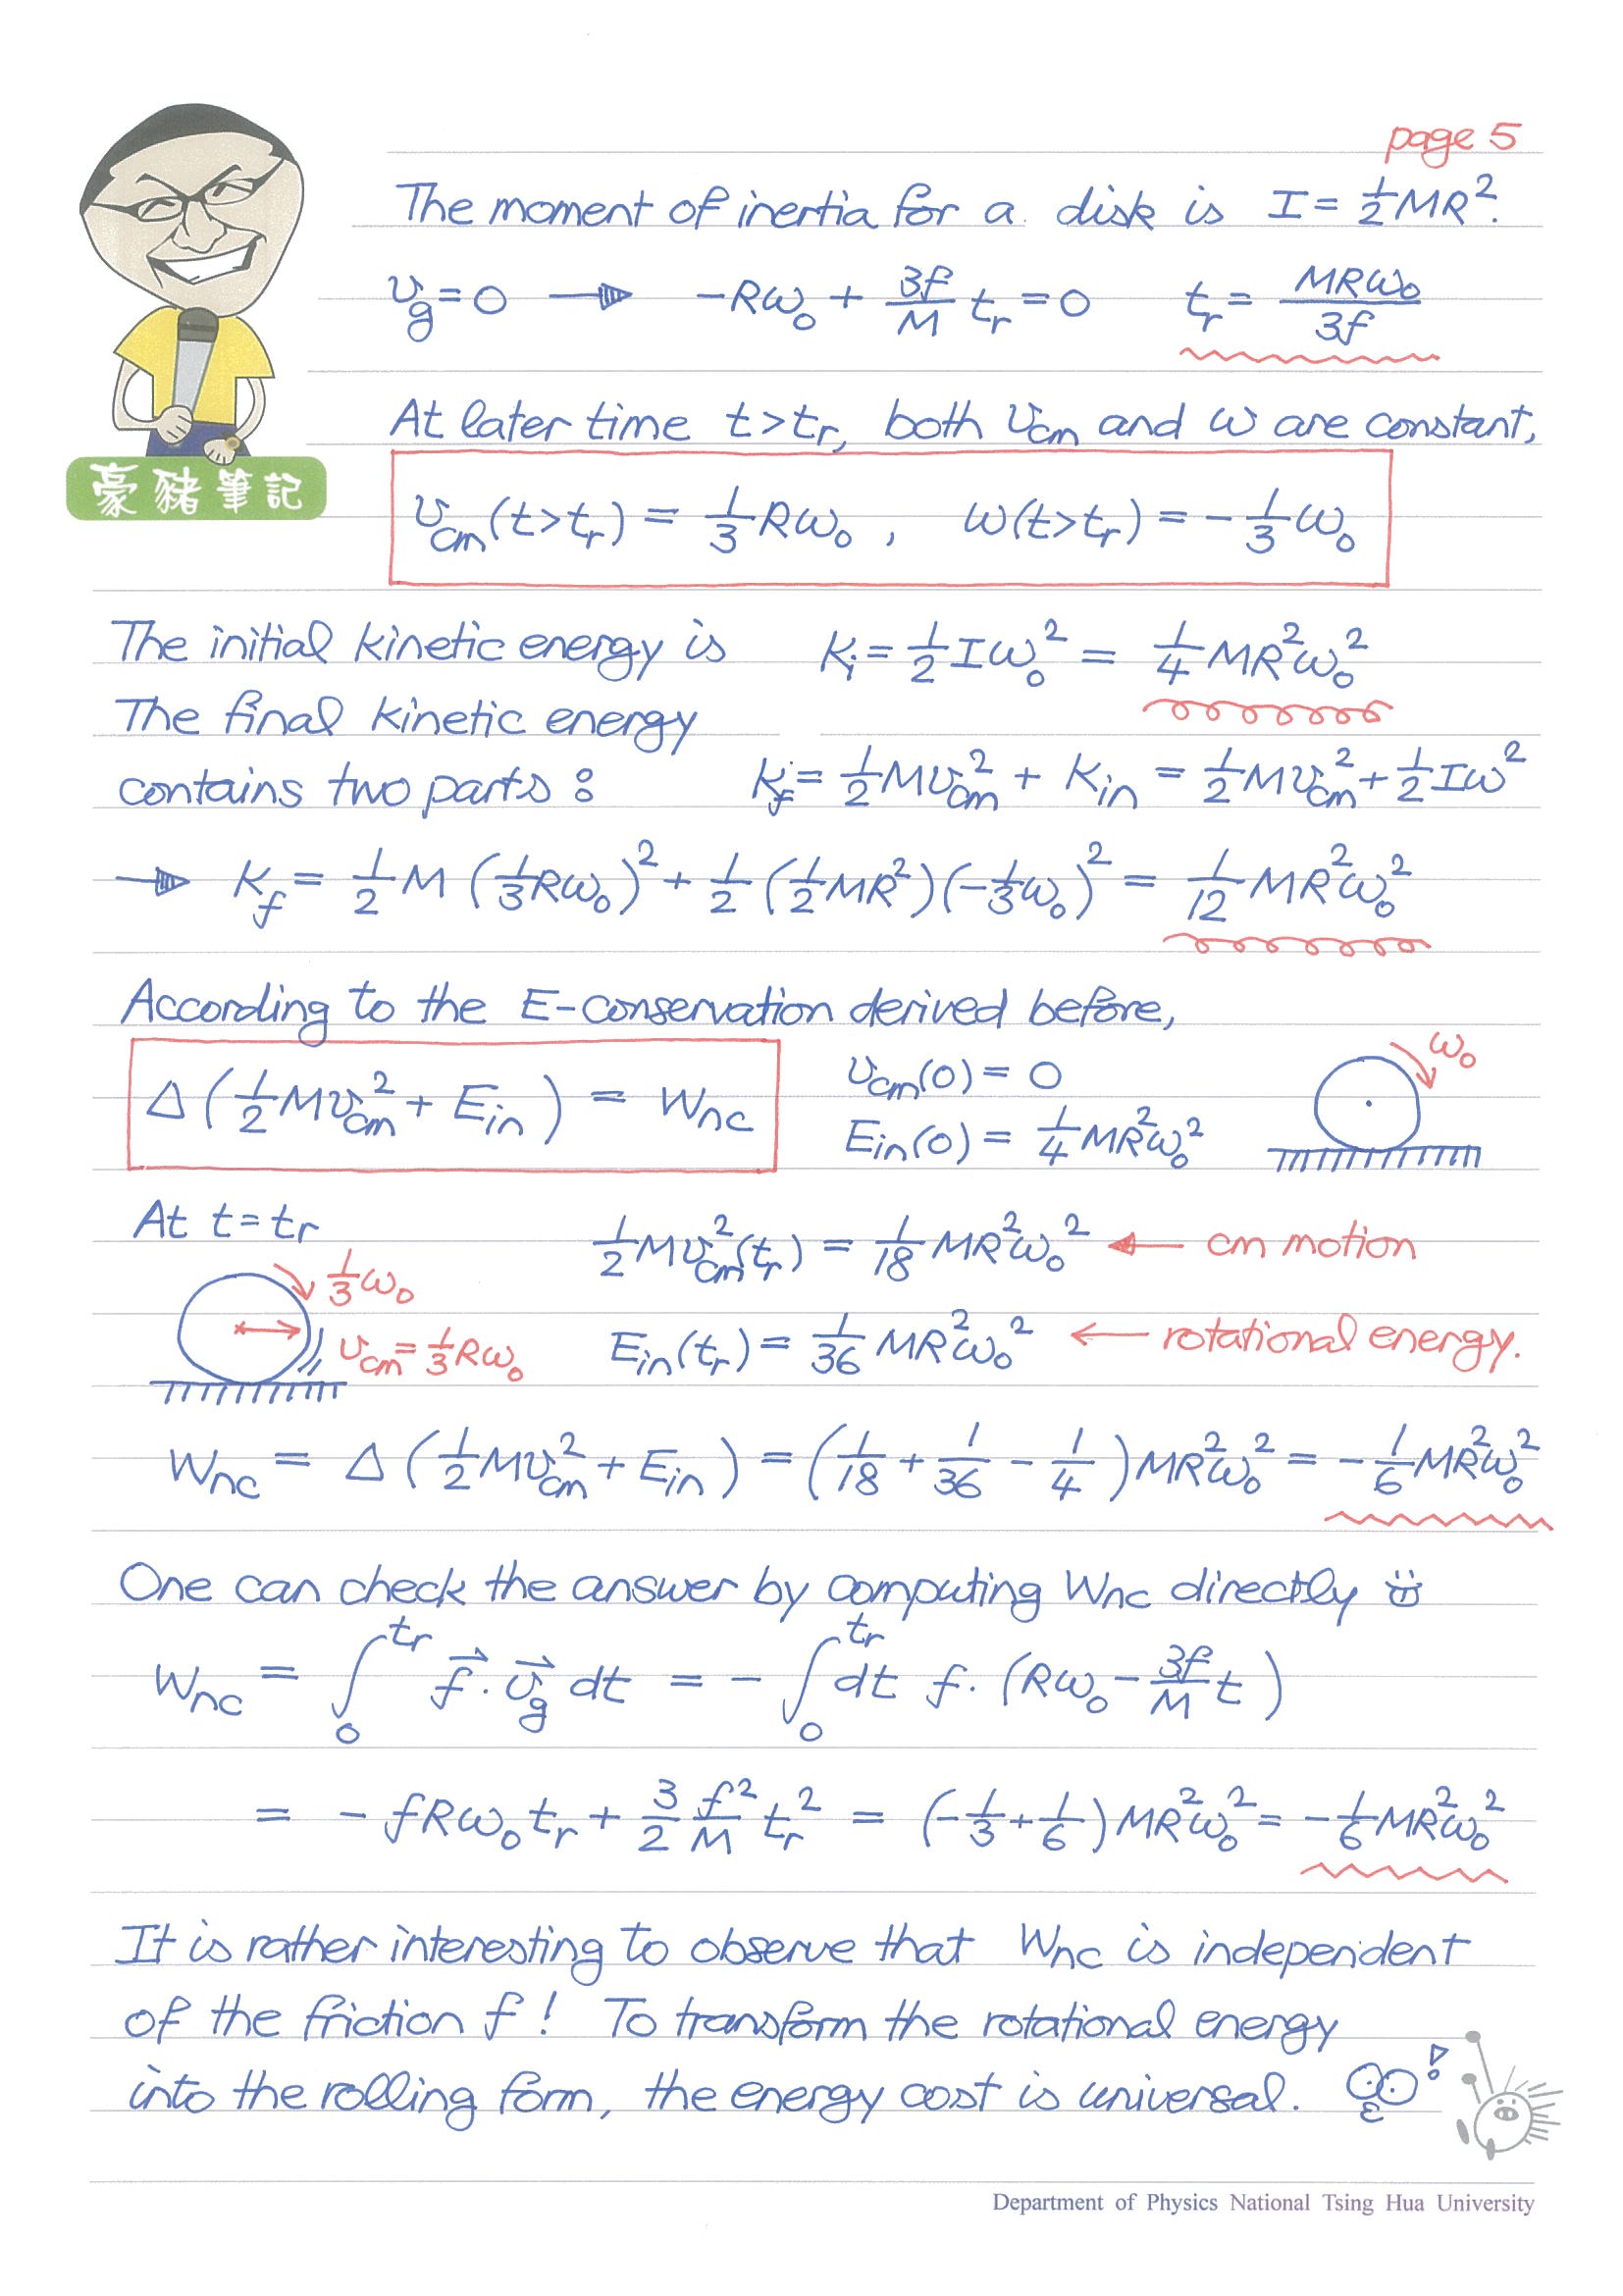 page 5
The moment of inertia for a disk is I = ½MR².
v_g = 0 → -Rω₀ + 3f/M t_r = 0 t_r = MRω₀/3f
At later time t > t_r, both v_cm and ω are constant,
豪豬筆記
v_cm(t>t_r) = 1/3 Rω₀ , ω(t>t_r) = -1/3 ω₀
The initial kinetic energy is K_i = ½Iω₀² = ¼MR²ω₀²
The final kinetic energy
contains two parts : K_f = ½Mv_cm² + K_in = ½Mv_cm² + ½Iω²
→ K_f = ½M(1/3 Rω₀)² + ½(½MR²)(-1/3 ω₀)² = 1/12 MR²ω₀²
According to the E-conservation derived before,
Δ(½Mv_cm² + E_in) = W_nc
v_cm(0) = 0
E_in(0) = ¼MR²ω₀²
ω₀
At t = t_r
1/3 ω₀
v_cm = 1/3 Rω₀
½Mv_cm²(t_r) = 1/18 MR²ω₀² ← cm motion
E_in(t_r) = 1/36 MR²ω₀² ← rotational energy.
W_nc = Δ(½Mv_cm² + E_in) = (1/18 + 1/36 - 1/4)MR²ω₀² = -1/6 MR²ω₀²
One can check the answer by computing W_nc directly
W_nc = ∫₀^t_r f⃗ · v⃗_g dt = -∫₀^t_r dt f · (Rω₀ - 3f/M t)
= -fRω₀t_r + 3/2 f²/M t_r² = (-1/3 + 1/6)MR²ω₀² = -1/6 MR²ω₀²
It is rather interesting to observe that W_nc is independent
of the friction f ! To transform the rotational energy
into the rolling form, the energy cost is universal.
Department of Physics National Tsing Hua University